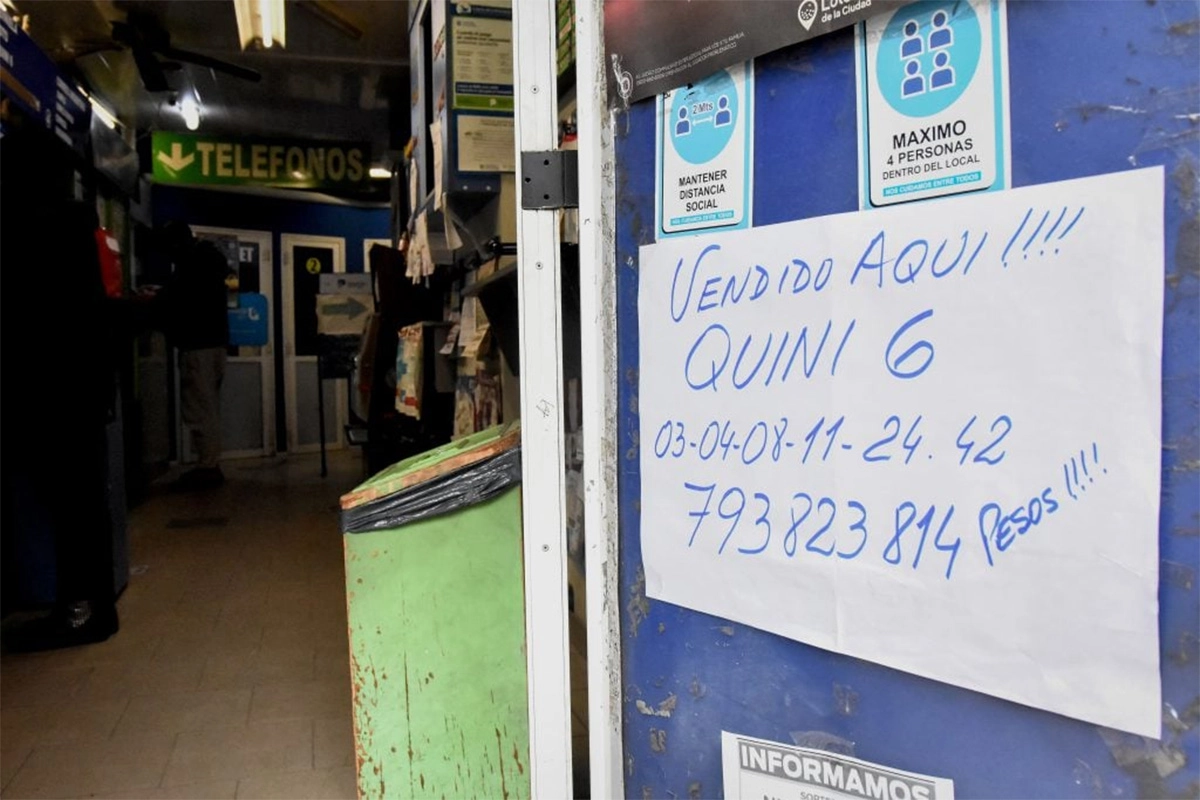 de la Ciudad
2 Mts
MANTENER
DISTANCIA
SOCIAL
NOS CUIDAMOS ENTRE TODOS
MAXIMO
4 PERSONAS
DENTRO DEL LOCAL
NOS CUIDAMOS ENTRE TODOS
TELEFONOS
2
VENDIDO AQUI !!!!
QUINI 6
03-04-08-11-24.42
793823814 PESOS !!!!
INFORMAMOS